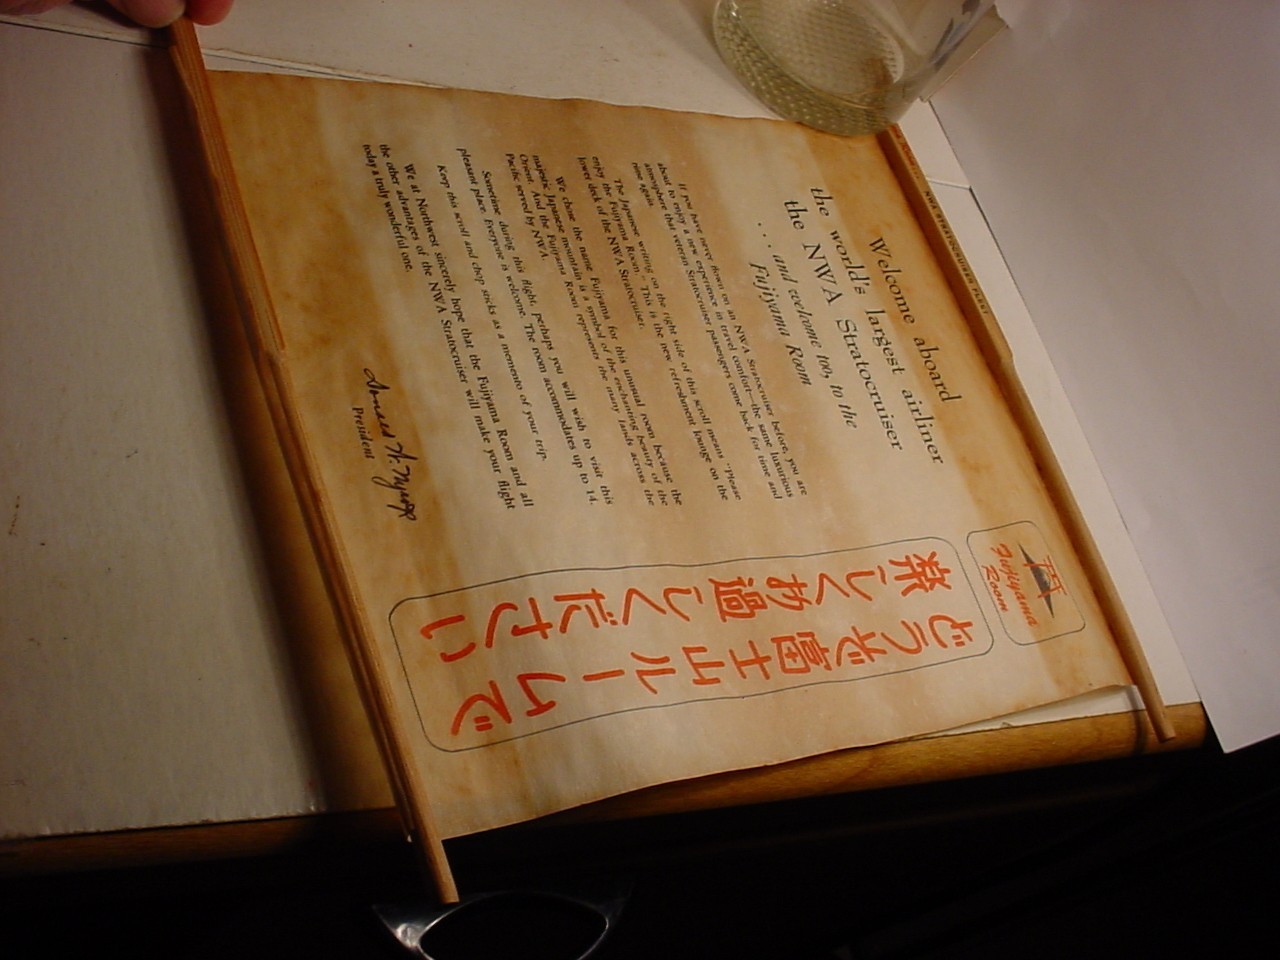 NWA STRATOCRUISER FLEET
Welcome aboard
the world's largest airliner
the NWA Stratocruiser
. . . and welcome too, to the
Fujiyama Room
If you have never flown on an NWA Stratocruiser before, you are
about to enjoy a new experience in travel comfort—the same luxurious
atmosphere that veteran Stratocruiser passengers come back for time and
time again.
The Japanese writing on the right side of this scroll means "Please
enjoy the Fujiyama Room." This is the new refreshment lounge on the
lower deck of the NWA Stratocruiser.
We chose the name Fujiyama for this unusual room because the
majestic Japanese mountain is a symbol of the enchanting beauty of the
Orient. And the Fujiyama Room represents the many lands across the
Pacific served by NWA.
Sometime during this flight, perhaps you will wish to visit this
pleasant place. Everyone is welcome. The room accommodates up to 14.
Keep this scroll and chop sticks as a memento of your trip.
We at Northwest sincerely hope that the Fujiyama Room and all
the other advantages of the NWA Stratocruiser will make your flight
today a truly wonderful one.
President
Fujiyama
Room
どうぞ富士山ルームで
楽しくお過しください